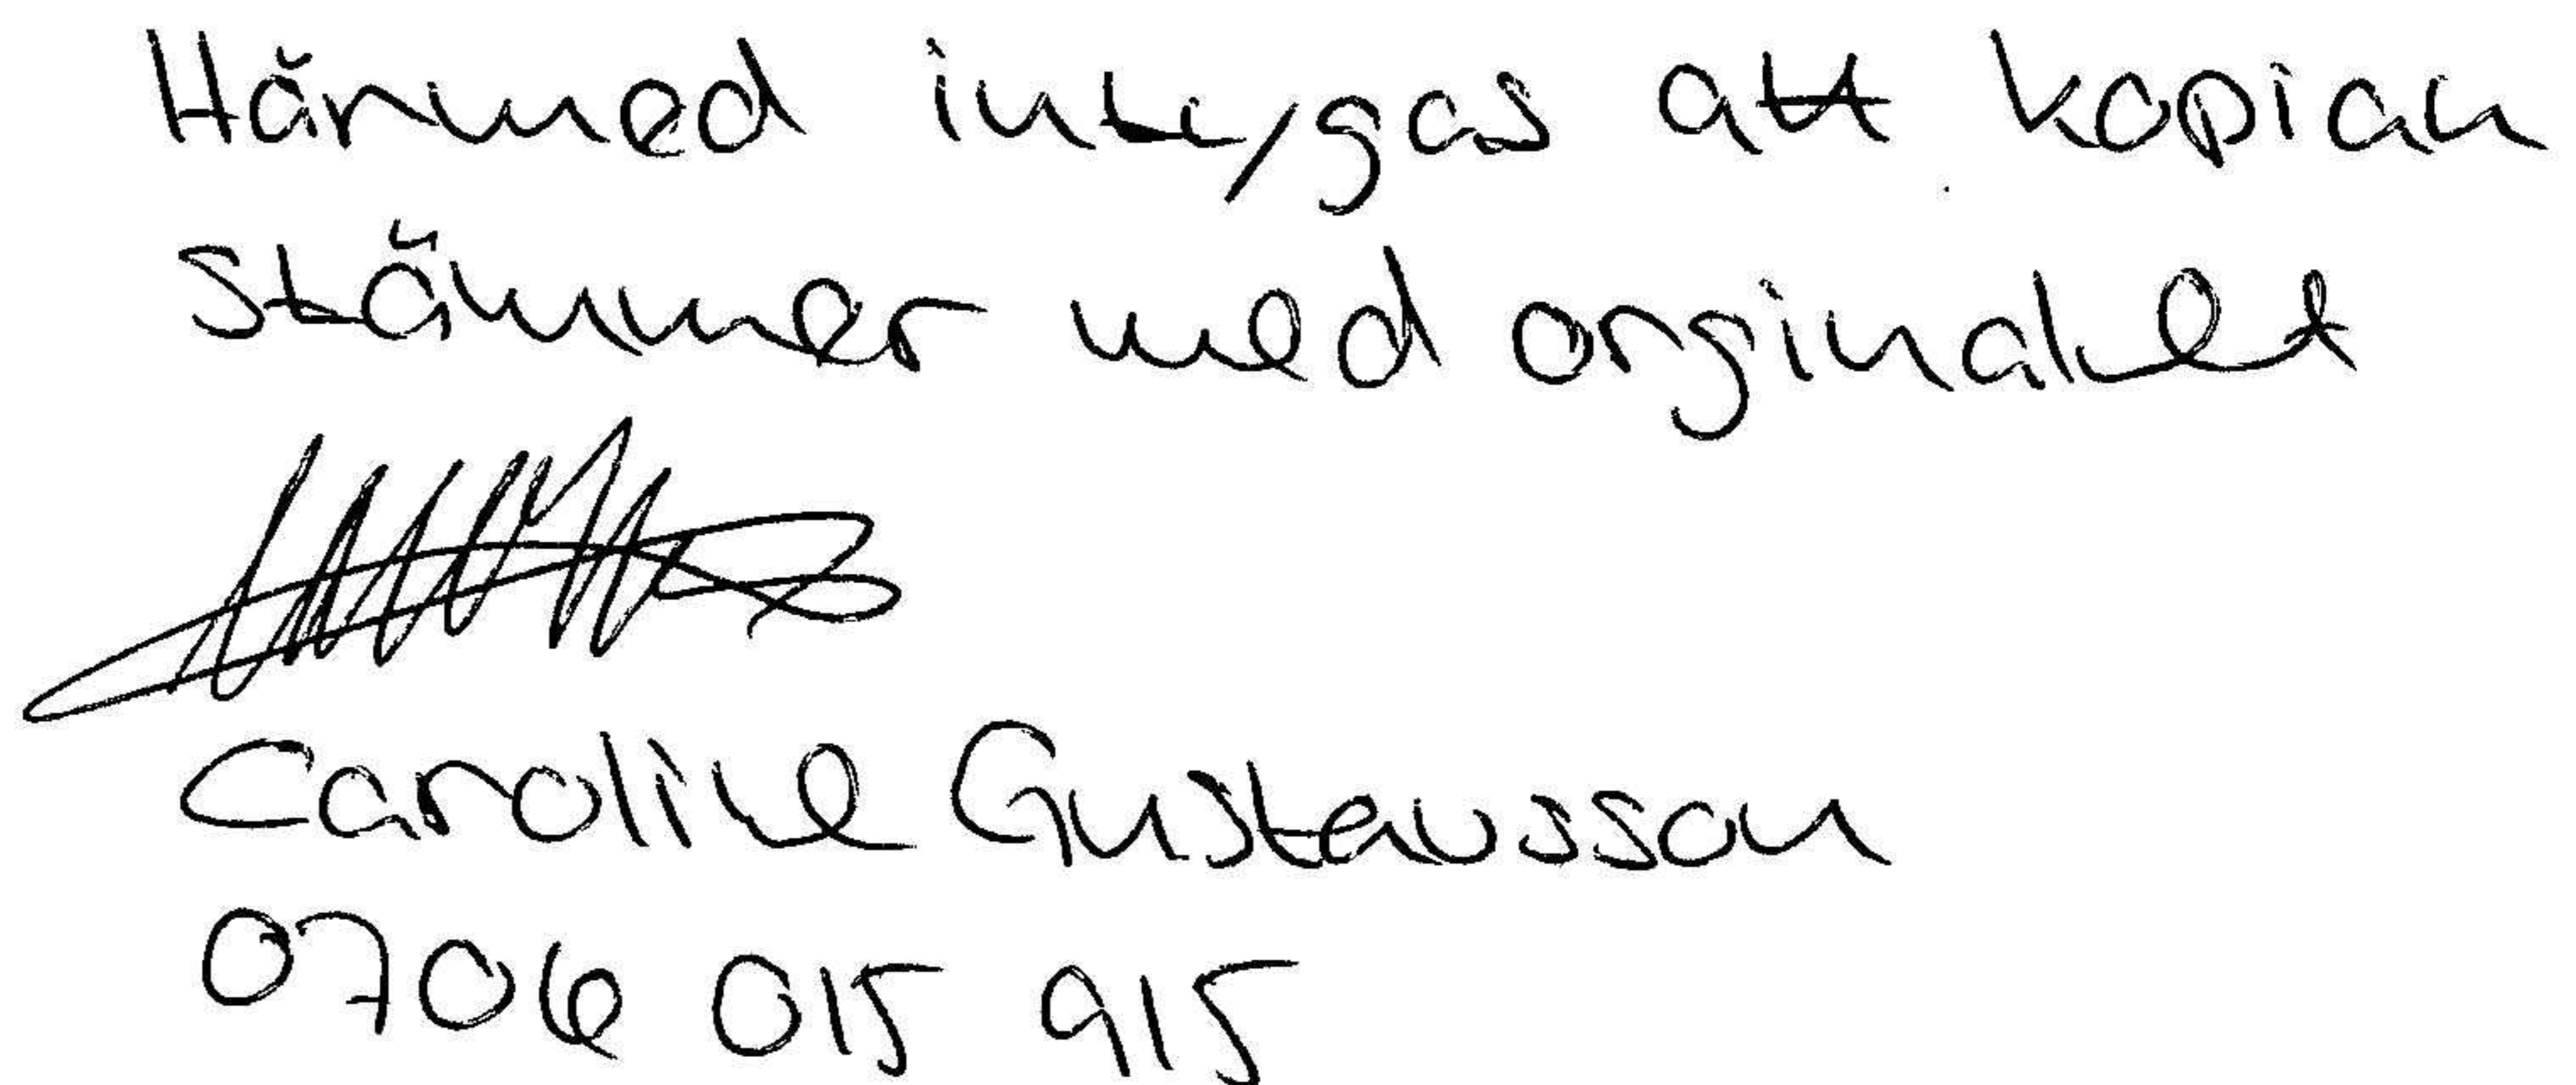 Härmed intygas att kopian
stämmer med orginalet
Caroline Gustavsson
0706 015 915